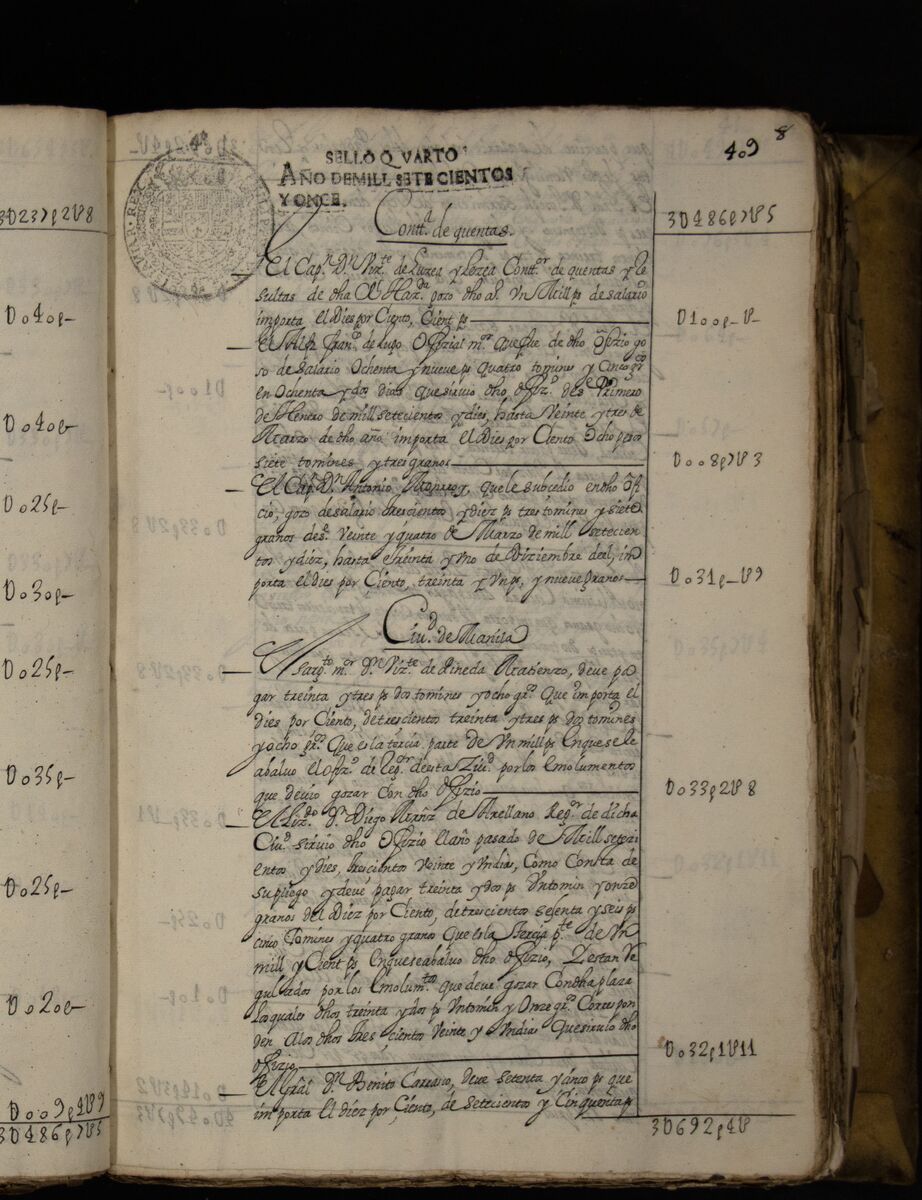 3U237p2U8
Uo40p—
Uo40p—
Uo25p—
Uo30p—
Uo25p—
Uo35p—
Uo25p—
Uo20p—
Uoo9p4U9
3U486p7U5
409 8
SELLO QVARTO
AÑO DE MILL SETECIENTOS
Y ONCE.
Contt.ª de quentas.
3U486p7U5
El Capⁿ Dⁿ Viz.te de Luzea y Contt.or de quentas y Re
sultas de dha Rl Haz.da gozo dho aº. Vn Mill ps de salario
importa el Dies por Ciento, Cient ps
U100p—U—
El Alfz Fran.co de Lugo Offizial mor que fue de dho Offizio go
zo de salario Ochenta y nueve ps quatro tomines y Cinco grs
en Ochenta y dos dias que sirvio dho offº. desde Primero
de Henero de mill setecientos y dies, hasta Veinte y tres de
Marzo de dho año importa el Dies por Ciento Ocho pesos
siete tomines y tres granos
Uoo8p7U3
El Capⁿ Dⁿ Antonio que le subcedio en dho Offi
cio, gozo de salario trescientos y diez ps tres tomines y siete
granos desde Veinte y quatro de Marzo de mill setecien
tos y diez, hasta treinta y vno de Diziembre del, im
porta el dies por Ciento, treinta y Vn ps, y nueve granos
Uo31p—U9
Ciu.d de Manila
El sargto mor Dⁿ Viz.te de Pineda Matienzo, deve pa
gar treinta y tres ps dos tomines y ocho grs Que importa el
dies por Ciento, de trescientos treinta y tres ps dos tomines
y ocho grs. Que es la tercia parte de Vn mill ps En que se le
abaluo el Ofizº. de Regor de esta Ziud por los Emolumentos
que devio gozar con dho Offizio
Uo33p2U8
El Lizdo Dⁿ Diego Mrñz de Arellano Regor de dicha
Ciud sirvio dho Offizio El año pasado de Mill seteci
entos y dies, trescientos Veinte y Vn dias, Como Consta de
su pliego y deve pagar treinta y dos ps Vn tomin y onze
granos del Diez por Ciento, de trescientos sesenta y seis ps
cinco Tomines y quatro granos Que es la tercia pte de Vn
mill y Cient ps En que se abaluo dho offizio, Y estan Re
gulados por los Emolumtos que deve gozar Con dha plaza
Los quales dhos treinta y dos ps Vn tomin y Onze grs Corres pon
den A los dhos tres cientos Veinte y Vn dias Que sirvio dho
offizio
Uo32p1U11
El Gral Dⁿ Benito Carrasco, deve setenta y cinco ps que
importa El diez por Ciento, de Setecientos y Cinquenta ps
3U692p4U